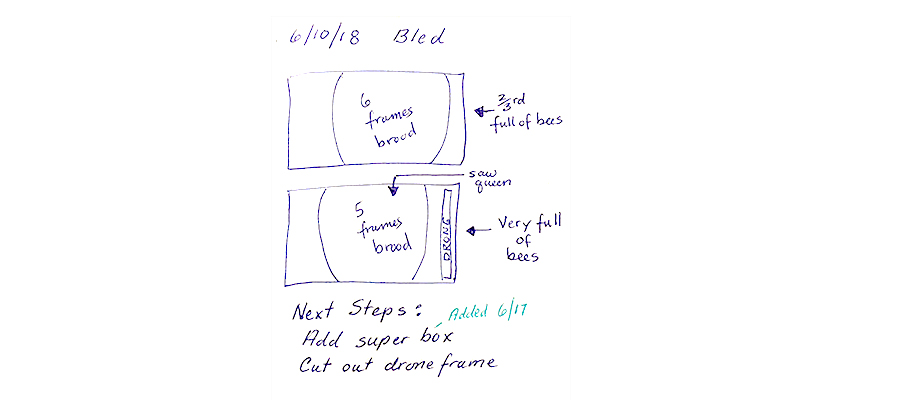 6/10/18 Bled
6
frames
brood
2/3rd
full of bees
saw
queen
5
frames
brood
DRONE
Very full
of
bees
Next Steps:
Added 6/17
Add super box
Cut out drone frame